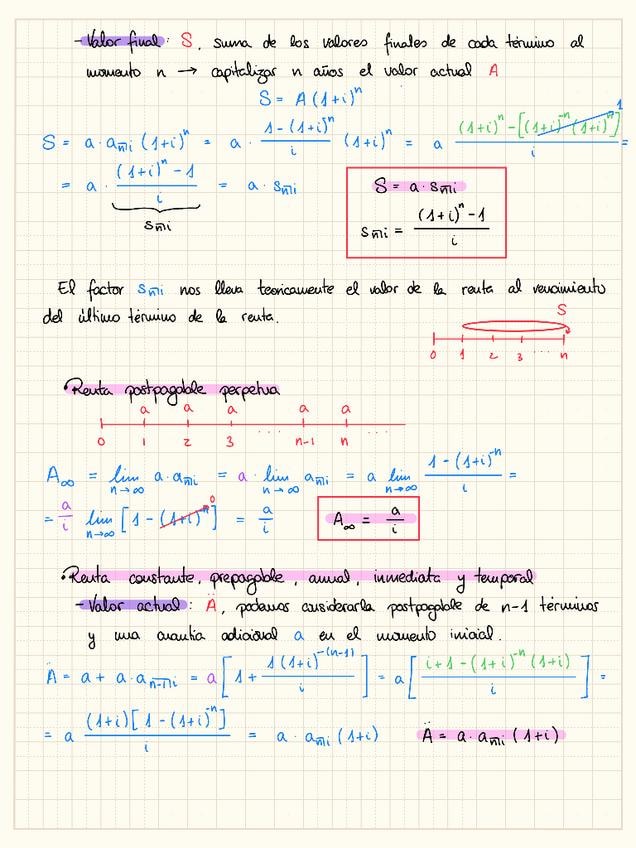 - Valor final: S, suma de los valores finales de cada término al
momento n → capitalizar n años el valor actual A
S = A (1+i)^n
S = a · a_n̅|i (1+i)^n = a · (1-(1+i)^n)/i (1+i)^n = a ((1+i)^n - [(1+i)^-n (1+i)^n] 1)/i =
= a · ((1+i)^n - 1)/i = a · s_n̅|i
s_n̅|i
S = a · s_n̅|i
s_n̅|i = ((1+i)^n - 1)/i
El factor s_n̅|i nos lleva teoricamente el valor de la renta al vencimiento
del último término de la renta.
S
0 1 2 3 .... n
• Renta postpagable perpetua
a a a a a
0 1 2 3 .... n-1 n ....
A_∞ = lim n→∞ a · a_n̅|i = a · lim n→∞ a_n̅|i = a lim n→∞ (1-(1+i)^-n)/i =
= a/i lim n→∞ [1 - (1+i)^-n 0] = a/i
A_∞ = a/i
• Renta constante, prepagable, anual, inmediata y temporal
- Valor actual: Ä, podemos considerarla postpagable de n-1 términos
y una cuantía adicional a en el momento inicial.
Ä = a + a · a_n-1̅|i = a [1 + (1(1+i)^-(n-1))/i] = a [(i+1-(1+i)^-n (1+i))/i] =
= a ((1+i)[1-(1+i)^-n])/i = a · a_n̅|i (1+i)
Ä = a · a_n̅|i (1+i)